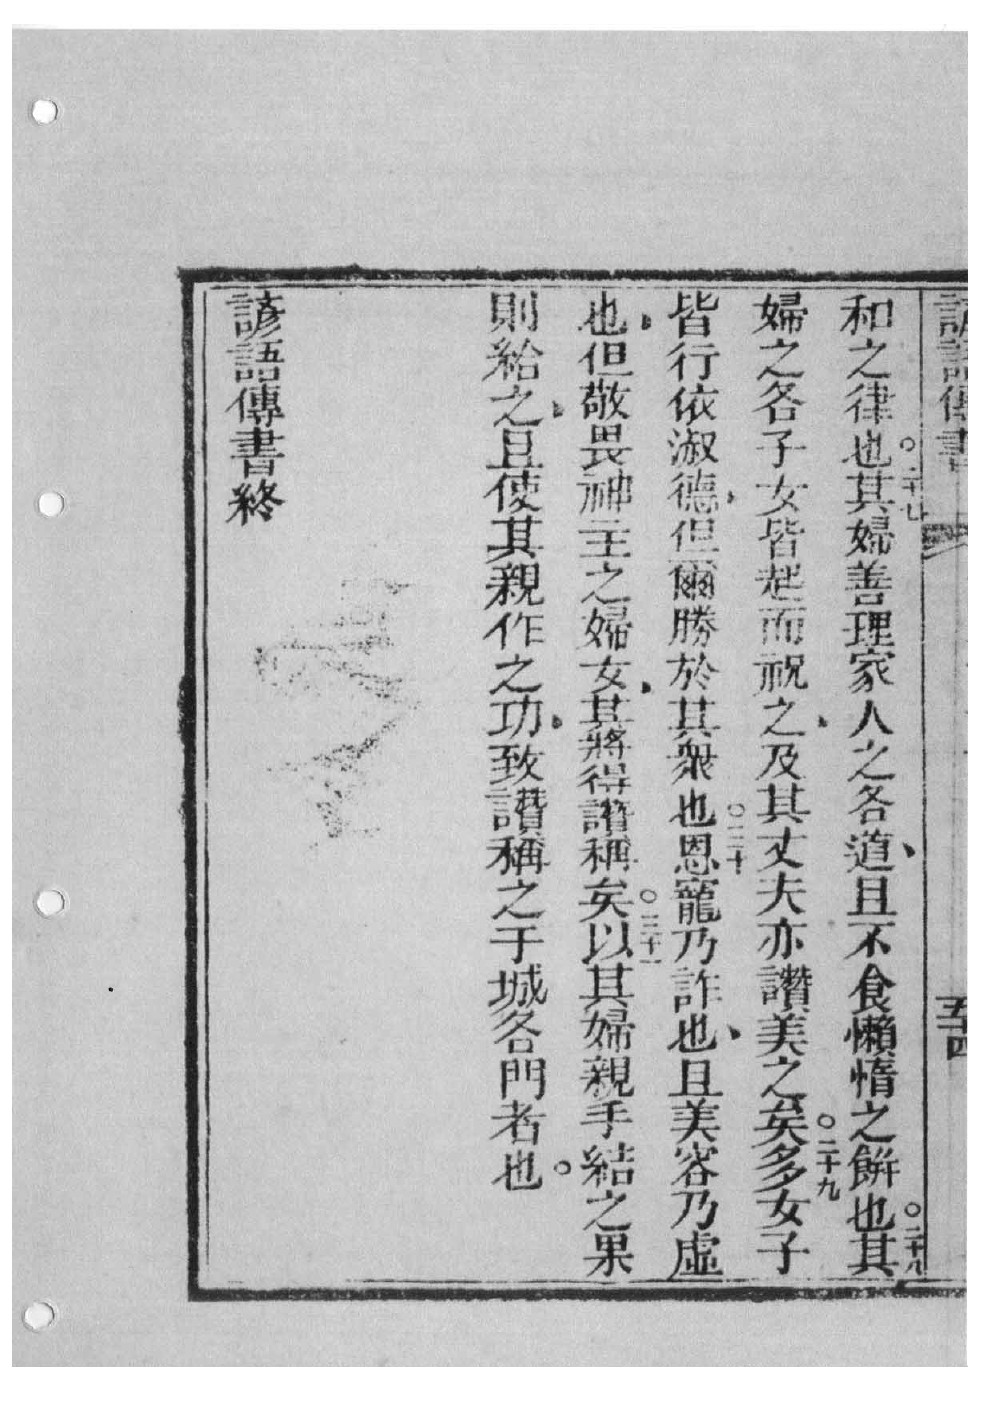 諺語傳書
五十四
和之律也。二十七其婦善理家人之各道、且不食懶惰之餅也。二十八其
婦之各子女皆起而祝之、及其丈夫亦讚美之矣。二十九多女子
皆行依淑德、但爾勝於其衆也。三十恩寵乃詐也、且美容乃虛
也、但敬畏神主之婦女、其將得讚稱矣。三十一以其婦親手結之果
則給之、且使其親作之功、致讚稱之于城各門者也。
諺語傳書終